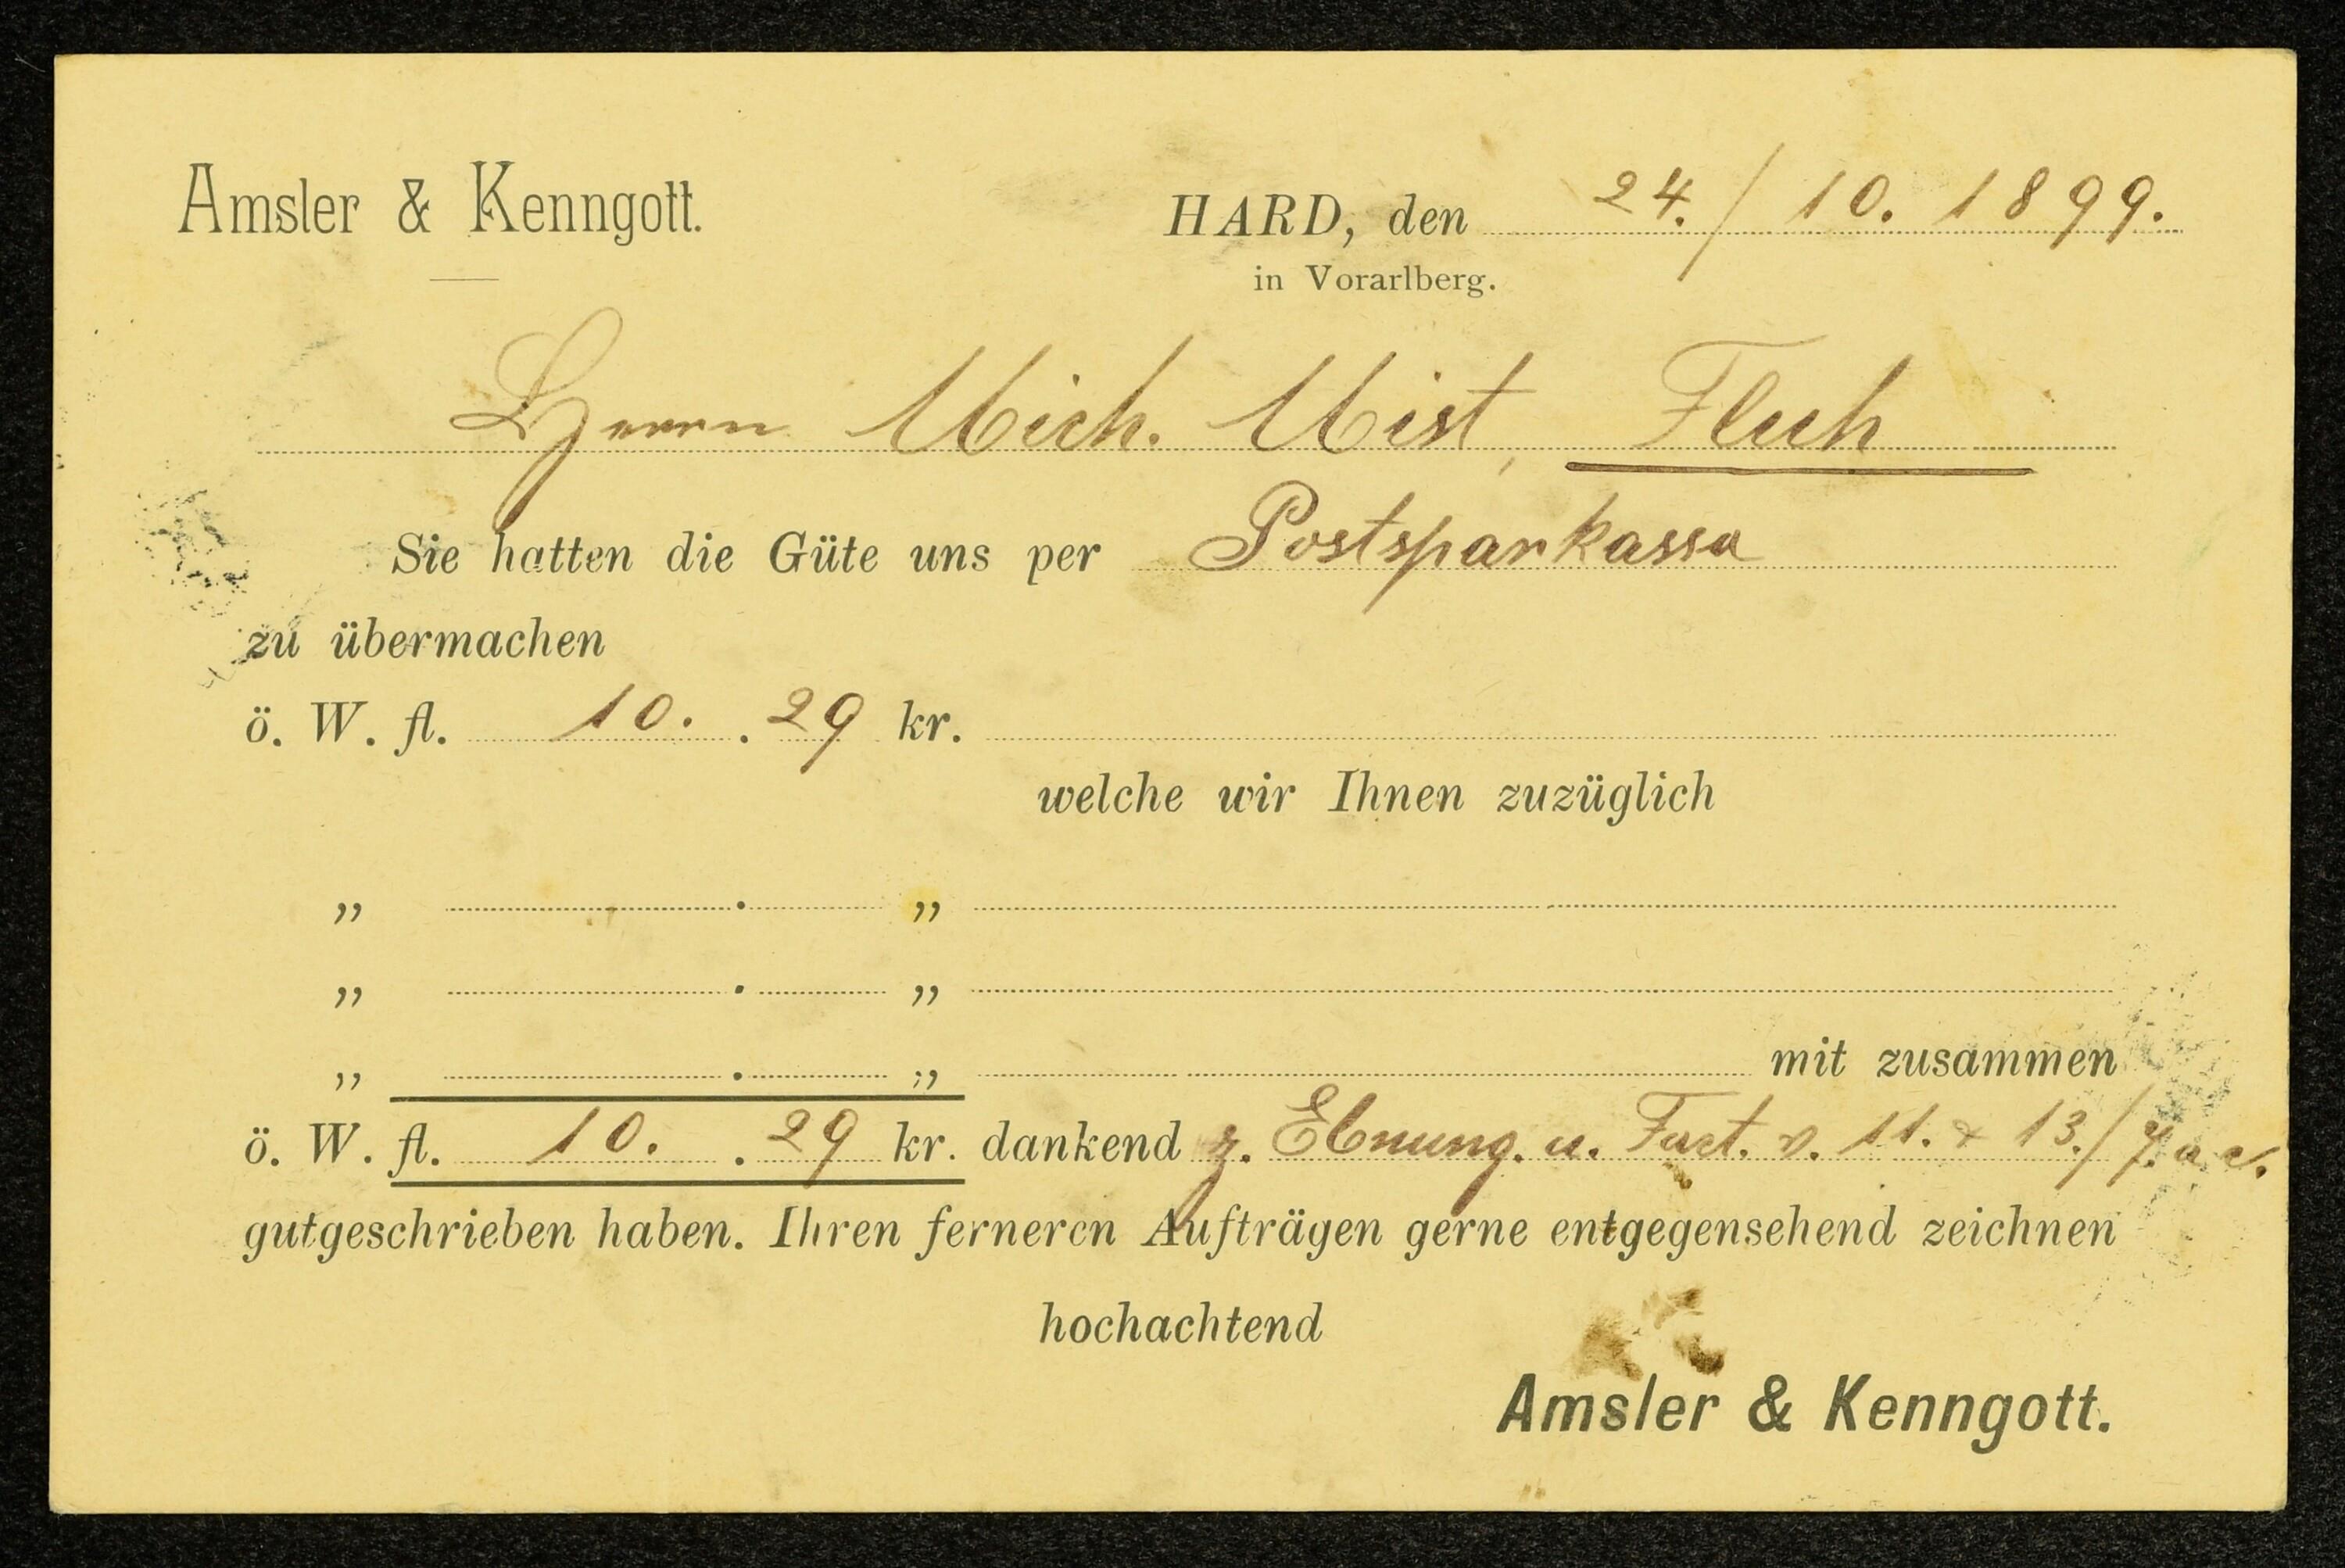 Amsler & Kenngott.
HARD, den 24./10. 1899.
in Vorarlberg.
Herrn Mich. Mist, Fluh
Sie hatten die Güte uns per Postsparkassa
zu übermachen
ö. W. fl. 10. . 29 kr.
welche wir Ihnen zuzüglich
„ . „
„ . „
„ . „ mit zusammen
ö. W. fl. 10. . 29 kr. dankend z. Ebnung. u. Fact. v. 11. & 13./7. a. c.
gutgeschrieben haben. Ihren ferneren Aufträgen gerne entgegensehend zeichnen
hochachtend
Amsler & Kenngott.